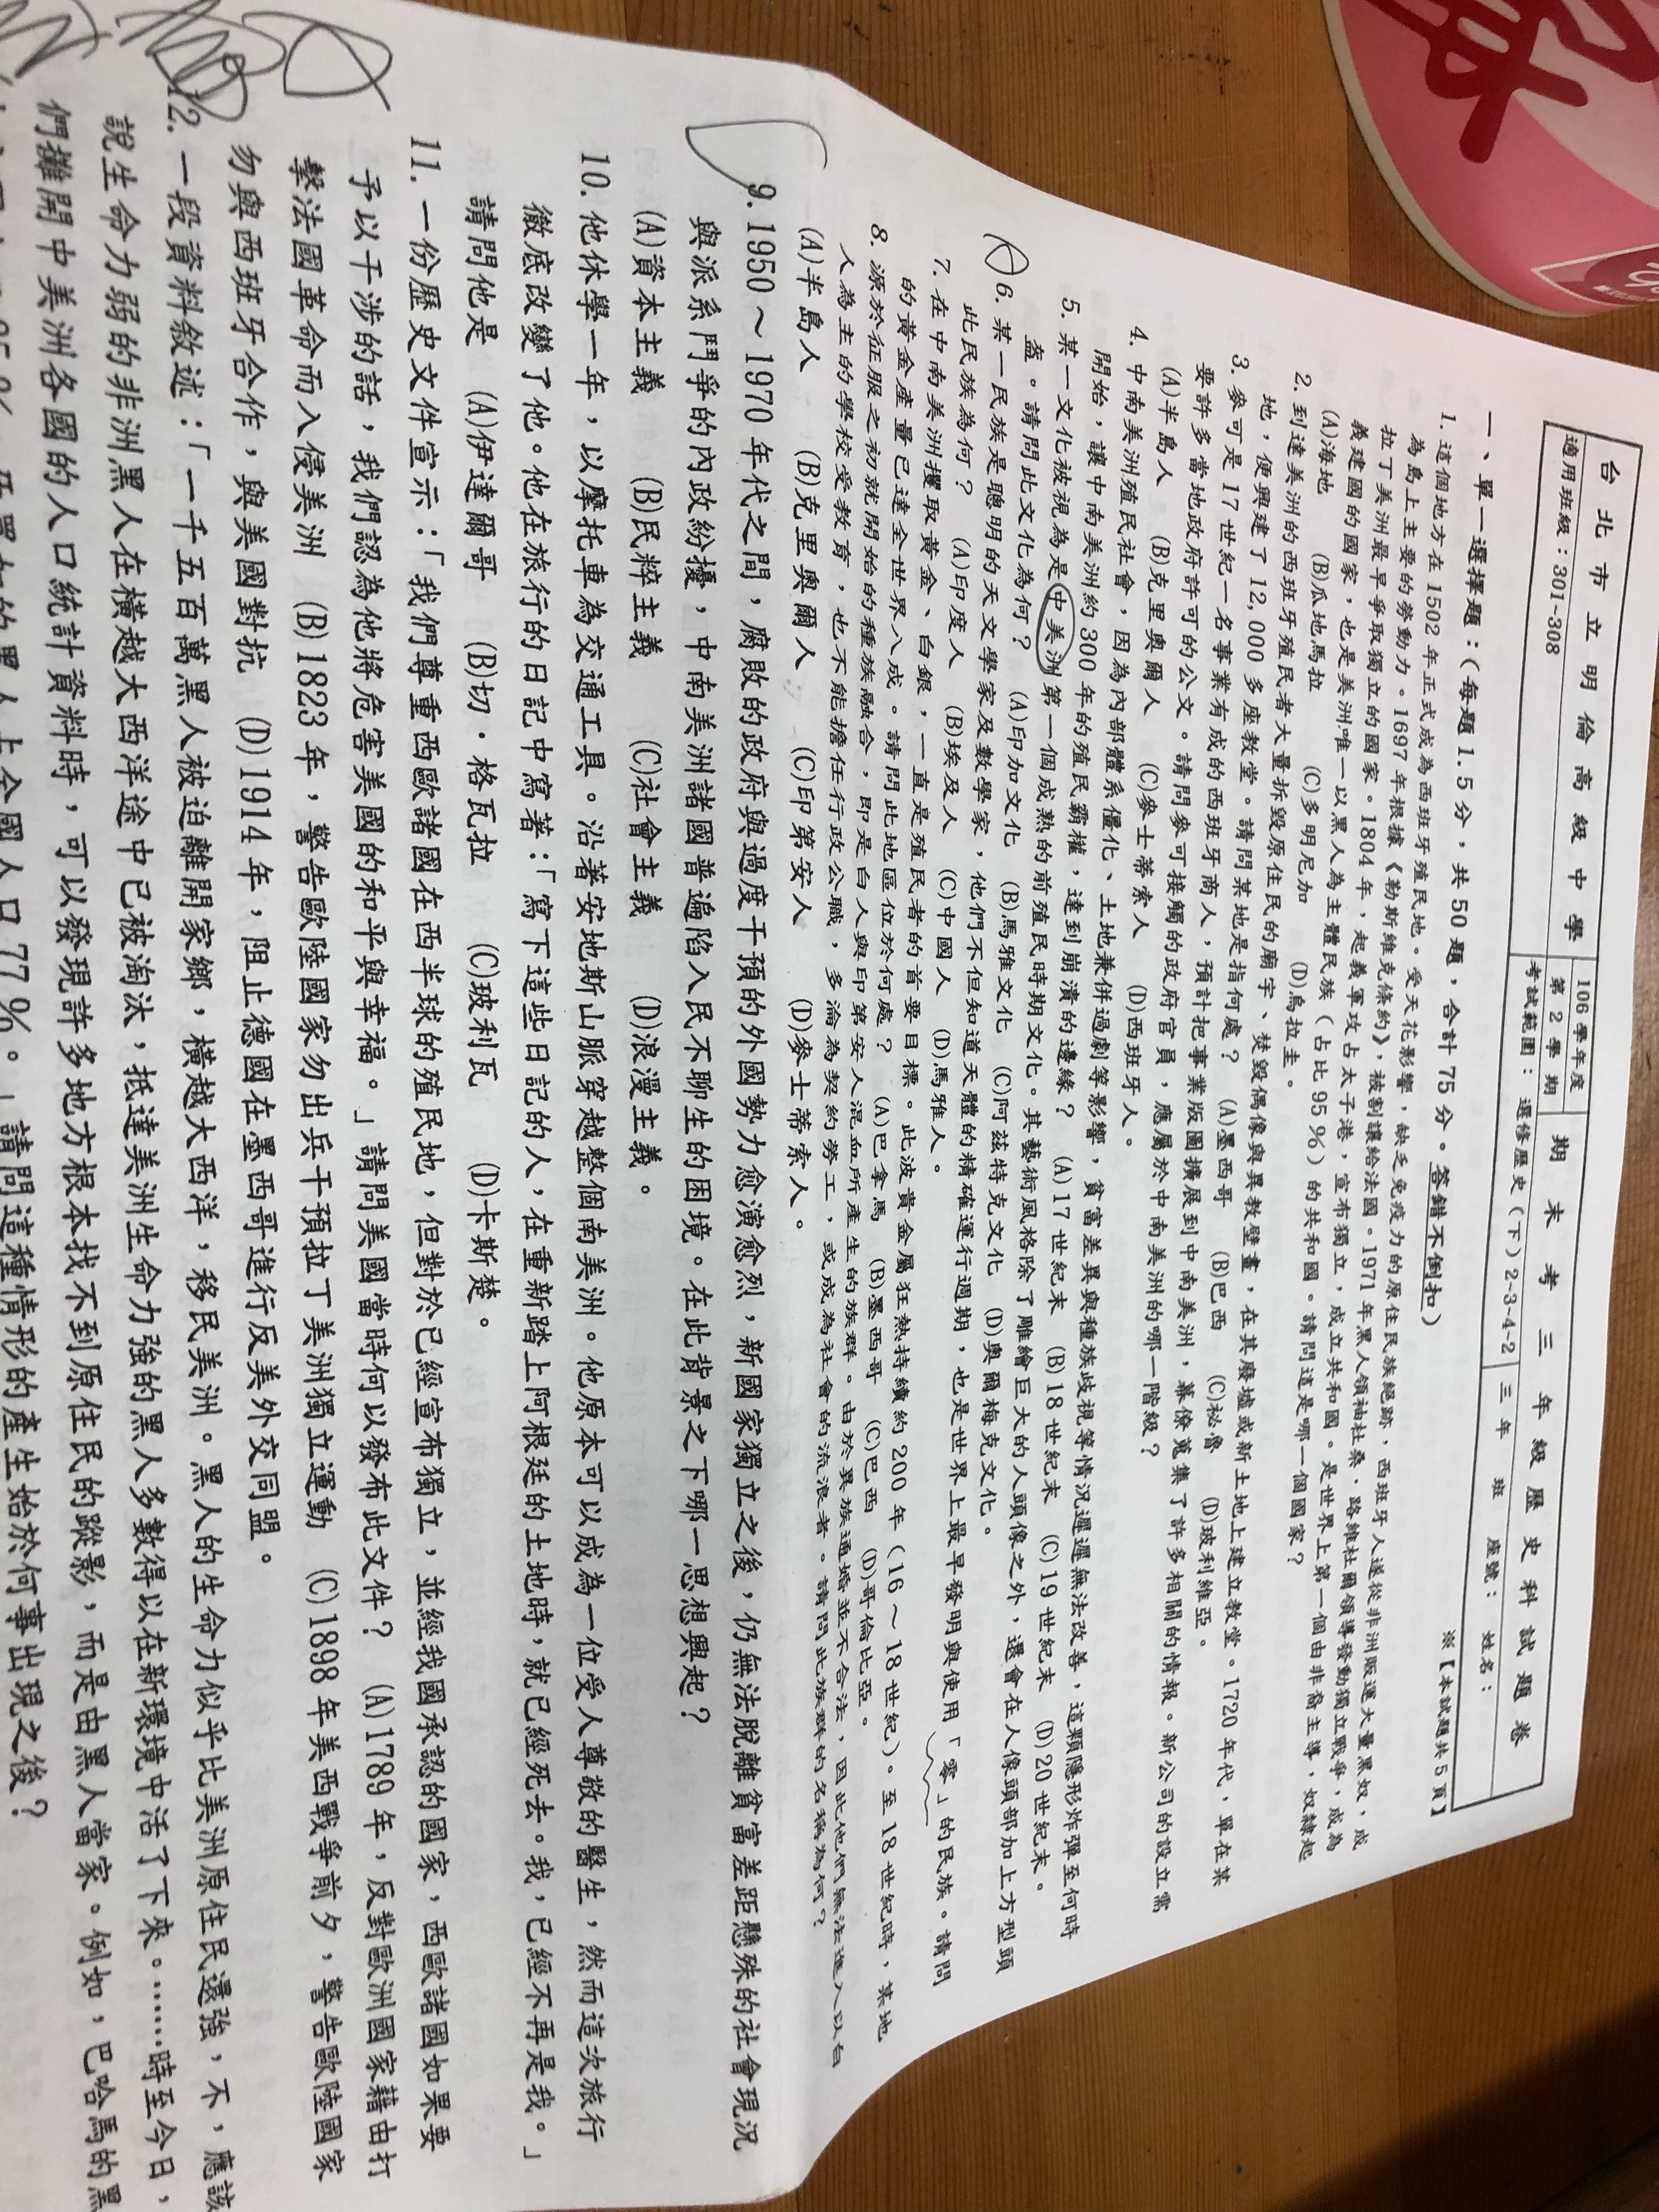 台北市立明倫高級中學
106學年度
第2學期
期末考三年級歷史科試題卷
適用班級：301~308
考試範圍：選修歷史（下）2-3-4-2
三年 班 座號： 姓名：
※【本試題共5頁】
一、單一選擇題：（每題1.5分，共50題，合計75分。答錯不倒扣）
1. 這個地方在1502年正式成為西班牙殖民地。受天花影響，缺乏免疫力的原住民族絕跡，西班牙人遂從非洲販運大量黑奴，成
為島上主要的勞動力。1697年根據《勒斯維克條約》，被割讓給法國。1971年黑人領袖杜桑．路維杜爾領導發動獨立戰爭，成為
拉丁美洲最早爭取獨立的國家。1804年，起義軍攻占太子港，宣布獨立，成立共和國。是世界上第一個由非裔主導，奴隸起
義建國的國家，也是美洲唯一以黑人為主體民族（占比95%）的共和國。請問這是哪一個國家？
(A)海地 (B)瓜地馬拉 (C)多明尼加 (D)烏拉圭。
2. 到達美洲的西班牙殖民者大量拆毀原住民的廟宇、焚毀偶像與異教壁畫，在其廢墟或新土地上建立教堂。1720年代，單在某
地，便興建了12,000多座教堂。請問某地是指何處？ (A)墨西哥 (B)巴西 (C)祕魯 (D)玻利維亞。
3. 參可是17世紀一名事業有成的西班牙商人，預計把事業版圖擴展到中南美洲，幕僚蒐集了許多相關的情報。新公司的設立需
要許多當地政府許可的公文。請問參可接觸的政府官員，應屬於中南美洲的哪一階級？
(A)半島人 (B)克里奧爾人 (C)麥士蒂索人 (D)西班牙人。
4. 中南美洲殖民社會，因為內部體系僵化、土地兼併過劇等影響，貧富差異與種族歧視等情況遲遲無法改善，這顆隱形炸彈至何時
開始，讓中南美洲約300年的殖民霸權，達到崩潰的邊緣？ (A)17世紀末 (B)18世紀末 (C)19世紀末 (D)20世紀末。
5. 某一文化被視為是中美洲第一個成熟的前殖民時期文化。其藝術風格除了雕繪巨大的人頭像之外，還會在人像頭部加上方型頭
盔。請問此文化為何？ (A)印加文化 (B)馬雅文化 (C)阿茲特克文化 (D)奧爾梅克文化。
6. 某一民族是聰明的天文學家及數學家，他們不但知道天體的精確運行週期，也是世界上最早發明與使用「零」的民族。請問
此民族為何？ (A)印度人 (B)埃及人 (C)中國人 (D)馬雅人。
7. 在中南美洲攫取黃金、白銀，一直是殖民者的首要目標。此波貴金屬狂熱持續約200年（16～18世紀）。至18世紀時，某地
的黃金產量已達全世界八成。請問此地區位於何處？ (A)巴拿馬 (B)墨西哥 (C)巴西 (D)哥倫比亞。
8. 源於征服之初就開始的種族融合，即是白人與印第安人混血所產生的族群。由於異族通婚並不合法，因此他們無法進入以白
人為主的學校受教育，也不能擔任行政公職，多淪為契約勞工，或成為社會的流浪者。請問此族群的名稱為何？
(A)半島人 (B)克里奧爾人 (C)印第安人 (D)麥士蒂索人。
9. 1950～1970年代之間，腐敗的政府與過度干預的外國勢力愈演愈烈，新國家獨立之後，仍無法脫離貧富差距懸殊的社會現況
與派系鬥爭的內政紛擾，中南美洲諸國普遍陷入民不聊生的困境。在此背景之下哪一思想興起？
(A)資本主義 (B)民粹主義 (C)社會主義 (D)浪漫主義。
10. 他休學一年，以摩托車為交通工具。沿著安地斯山脈穿越整個南美洲。他原本可以成為一位受人尊敬的醫生，然而這次旅行
徹底改變了他。他在旅行的日記中寫著：「寫下這些日記的人，在重新踏上阿根廷的土地時，就已經死去。我，已經不再是我。」
請問他是 (A)伊達爾哥 (B)切．格瓦拉 (C)玻利瓦 (D)卡斯楚。
11. 一份歷史文件宣示：「我們尊重西歐諸國在西半球的殖民地，但對於已經宣布獨立，並經我國承認的國家，西歐諸國如果要
予以干涉的話，我們認為他將危害美國的和平與幸福。」請問美國當時何以發布此文件？ (A)1789年，反對歐洲國家藉由打
擊法國革命而入侵美洲 (B)1823年，警告歐陸國家勿出兵干預拉丁美洲獨立運動 (C)1898年美西戰爭前夕，警告歐陸國家
勿與西班牙合作，與美國對抗 (D)1914年，阻止德國在墨西哥進行反美外交同盟。
12. 一段資料敘述：「一千五百萬黑人被迫離開家鄉，橫越大西洋，移民美洲。黑人的生命力似乎比美洲原住民還強，不，應該
說生命力弱的非洲黑人在橫越大西洋途中已被淘汰，抵達美洲生命力強的黑人多數得以在新環境中活了下來。……時至今日，
們攤開中美洲各國的人口統計資料時，可以發現許多地方根本找不到原住民的蹤影，而是由黑人當家。例如，巴哈馬的黑
黑人占全國人口77%。」請問這種情形的產生始於何事出現之後？